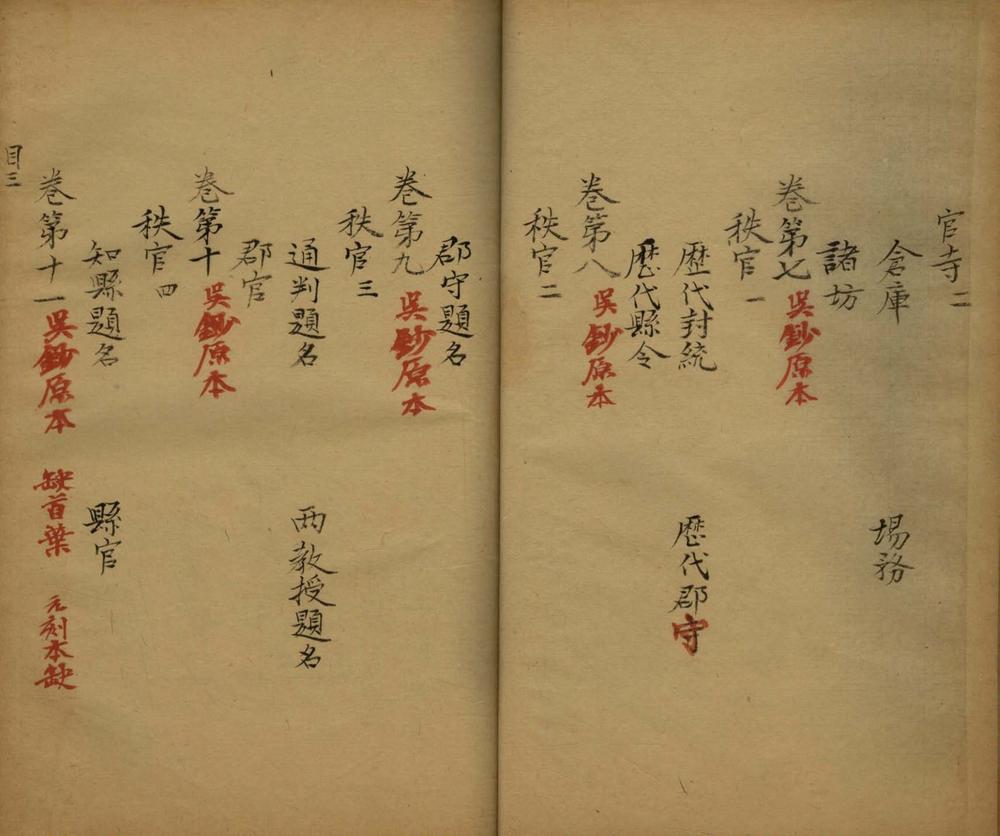 官寺二
倉庫 場務
諸坊
卷第七 吳鈔原本
秩官一
歷代封統 歷代郡守
歷代縣令
卷第八 吳鈔原本
秩官二
郡守題名
卷第九 吳鈔原本
秩官三
通判題名 兩教授題名
郡官
卷第十 吳鈔原本
秩官四
知縣題名 縣官
卷第十一 吳鈔原本 缺首葉 元刻本缺
目三